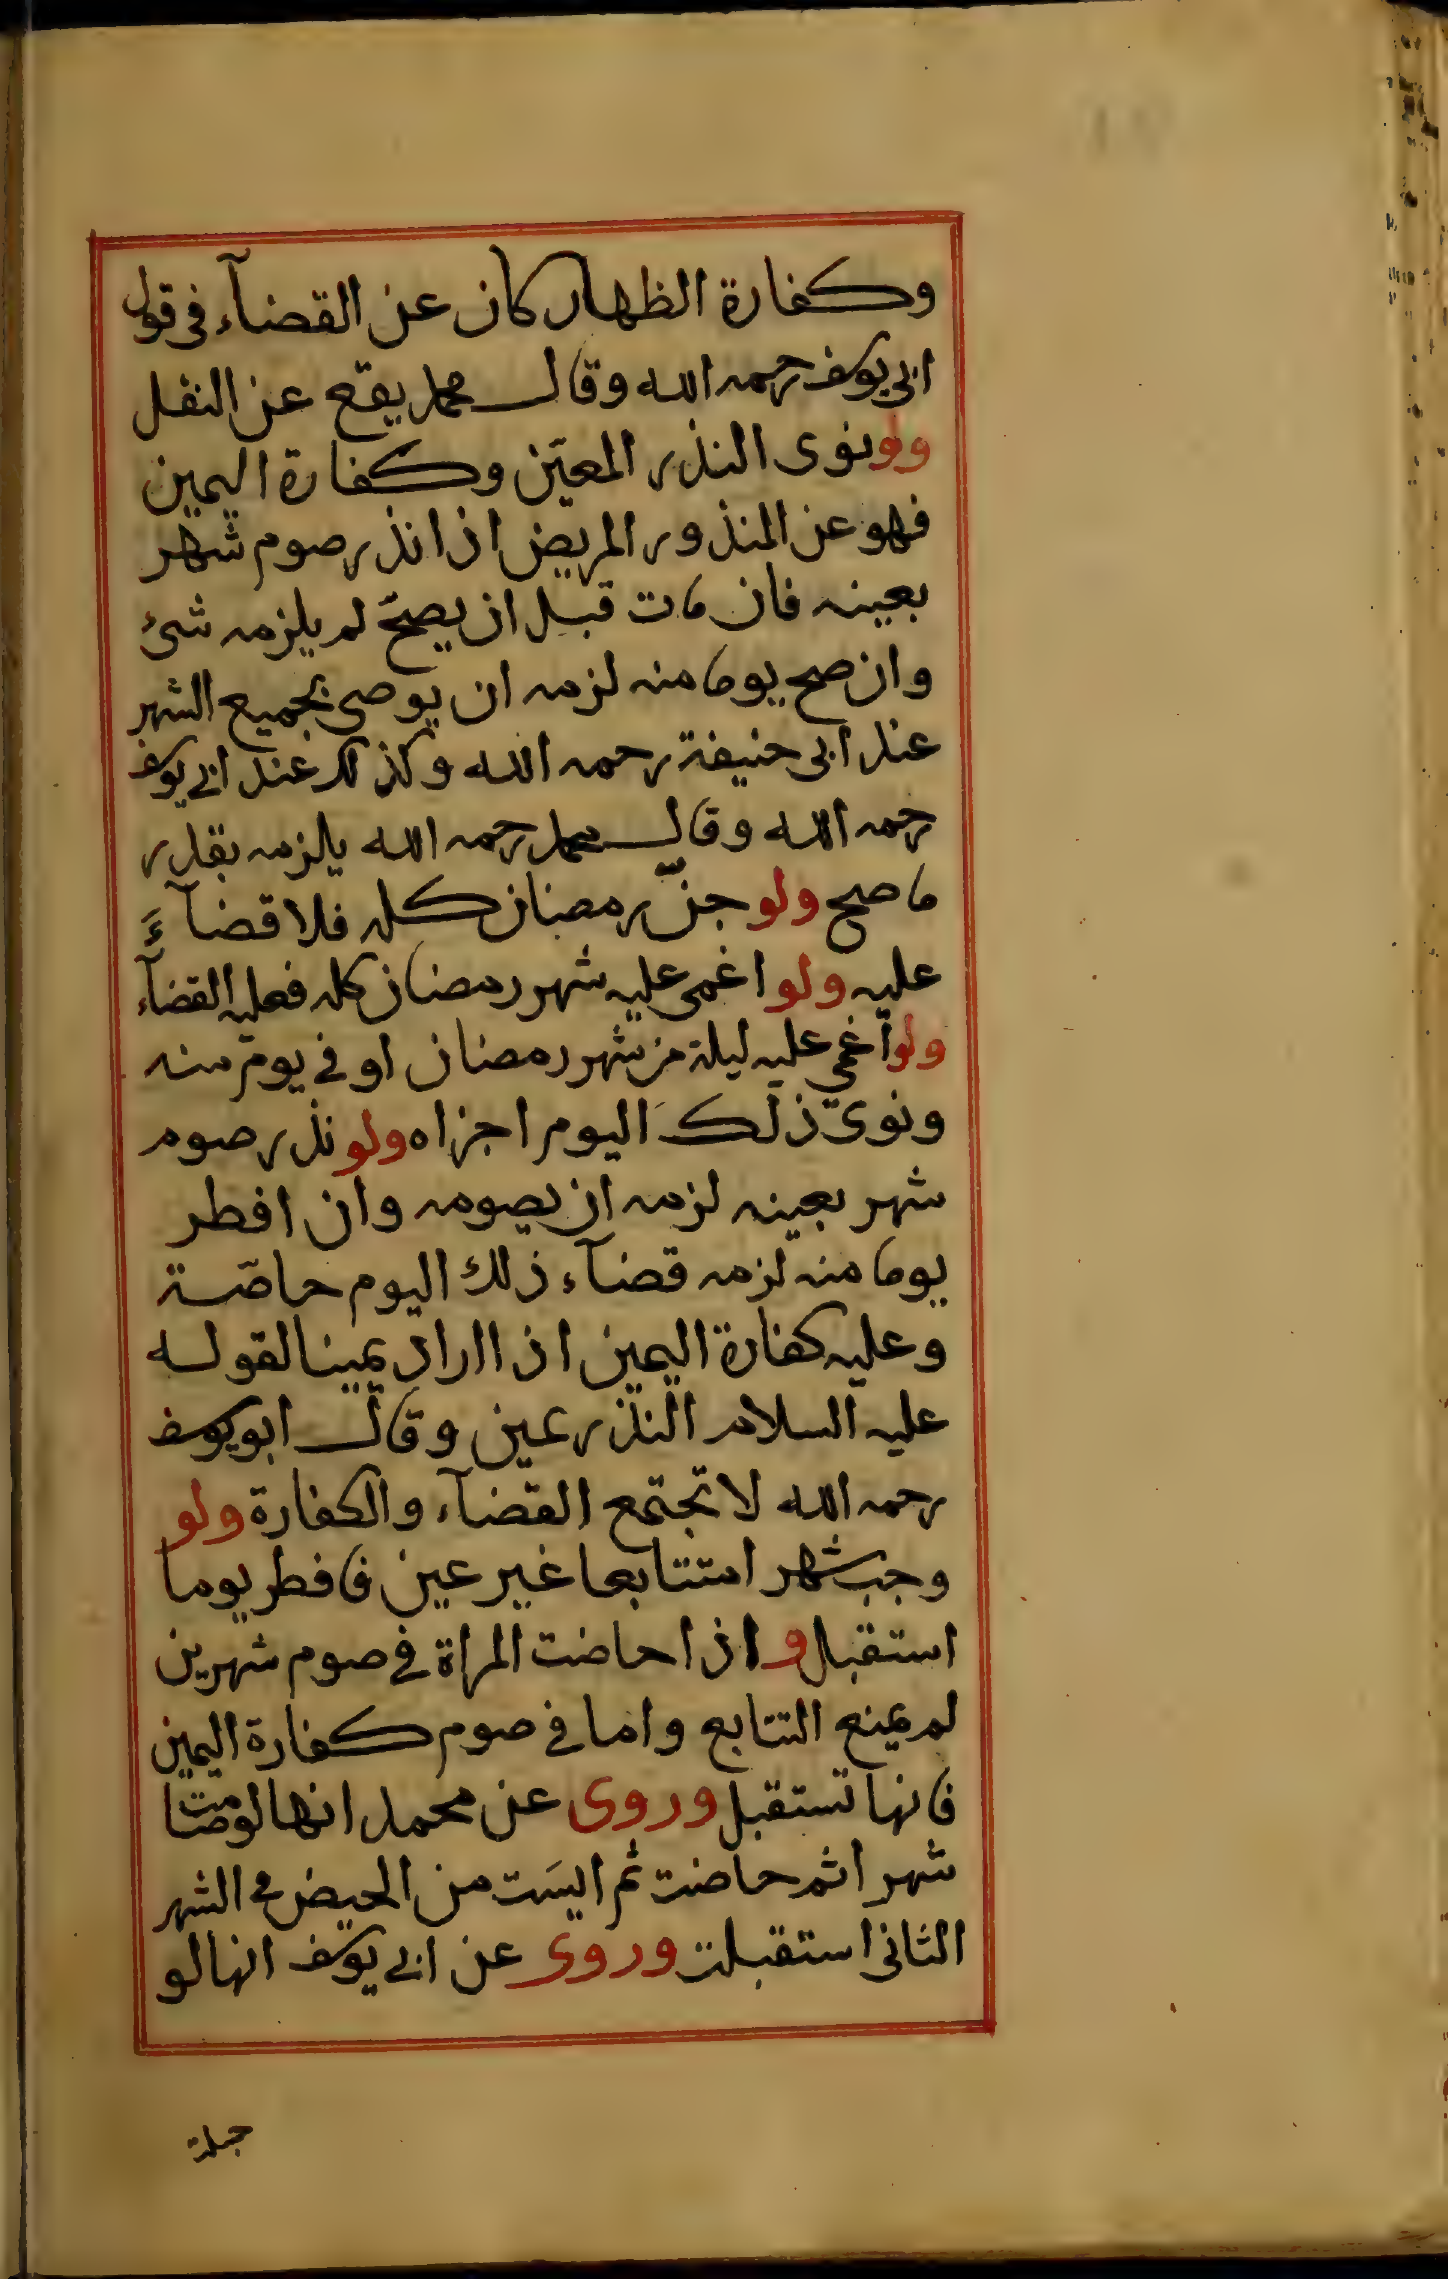 وكفارة الظهار كان عن القضآء فى قول
ابى يوسف رحمه الله وقال محمد يقع عن النفل
ولو نوى النذر المعيّن وكفارة اليمين
فهو عن المنذور المريض اذا نذر صوم شهر
بعينه فان مات قبل ان يصحّ لم يلزمه شئ
وان صح يوما منه لزمه ان يوصى بجميع الشهر
عند ابى حنيفة رحمه الله وكذلك عند ابى يوسف
رحمه الله وقال محمد رحمه الله يلزمه بقدر
ما صح ولو جنّ رمضان كله فلا قضآءَ
عليه ولو اغمى عليه شهر رمضان كله فعليه القضآء
ولو اغمي عليه ليلة من شهر رمضان او فى يوم منه
ونوى ذلك اليوم اجزاه ولو نذر صوم
شهر بعينه لزمه ان يصومه وان افطر
يوما منه لزمه قضآء ذلك اليوم حاصّة
وعليه كفارة اليمين اذا اراد يمينا لقوله
عليه السلام النذر يمين وقال ابو يوسف
رحمه الله لا تجتمع القضآء والكفارة ولو
وجب شهرا متتابعا غير عين فافطر يوما
استقبل واذا حاضت المراة فى صوم شهرين
لم يمنع التتابع واما فى صوم كفارة اليمين
فانها تستقبل وروى عن محمد انها لو صامت
شهرا ثم حاضت ثم ايسَت من الحيض فى الشهر
الثانى استقبلت وروى عن ابى يوسف انها لو
حبلت